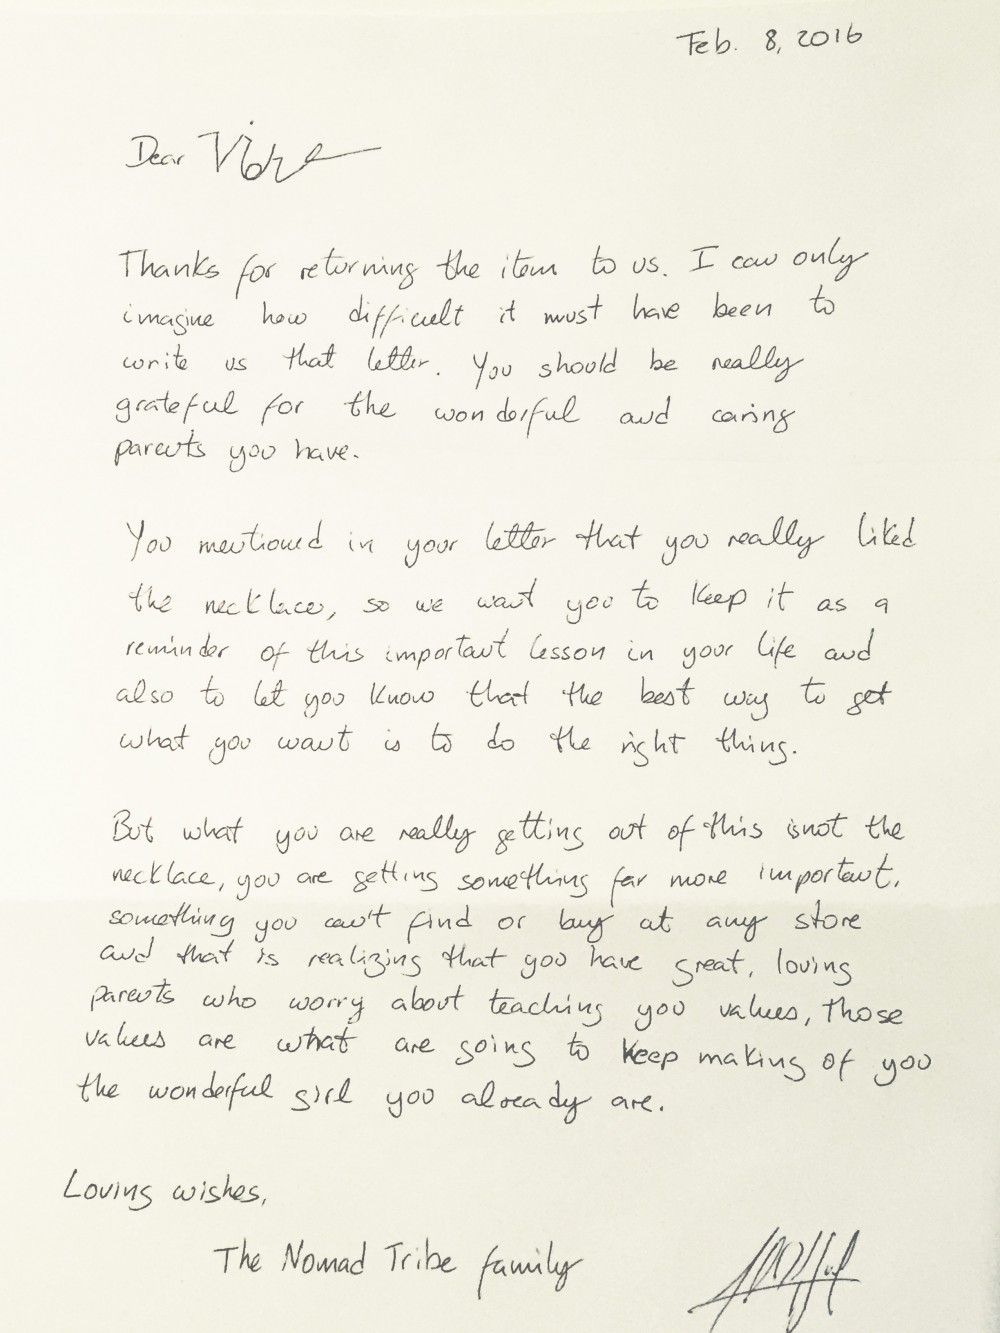 Feb. 8, 2016
Dear
Thanks for returning the item to us. I can only
imagine how difficult it must have been to
write us that letter. You should be really
grateful for the wonderful and caring
parents you have.
You mentioned in your letter that you really liked
the necklace, so we want you to keep it as a
reminder of this important lesson in your life and
also to let you know that the best way to get
what you want is to do the right thing.
But what you are really getting out of this is not the
necklace, you are getting something far more important,
something you can't find or buy at any store
and that is realizing that you have great, loving
parents who worry about teaching you values, those
values are what are going to keep making of you
the wonderful girl you already are.
Loving wishes,
The Nomad Tribe family